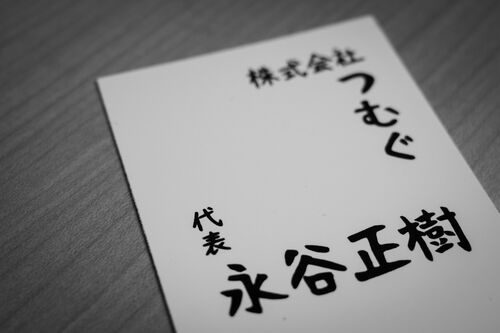 株式会社
つむぐ
代表
永谷正樹